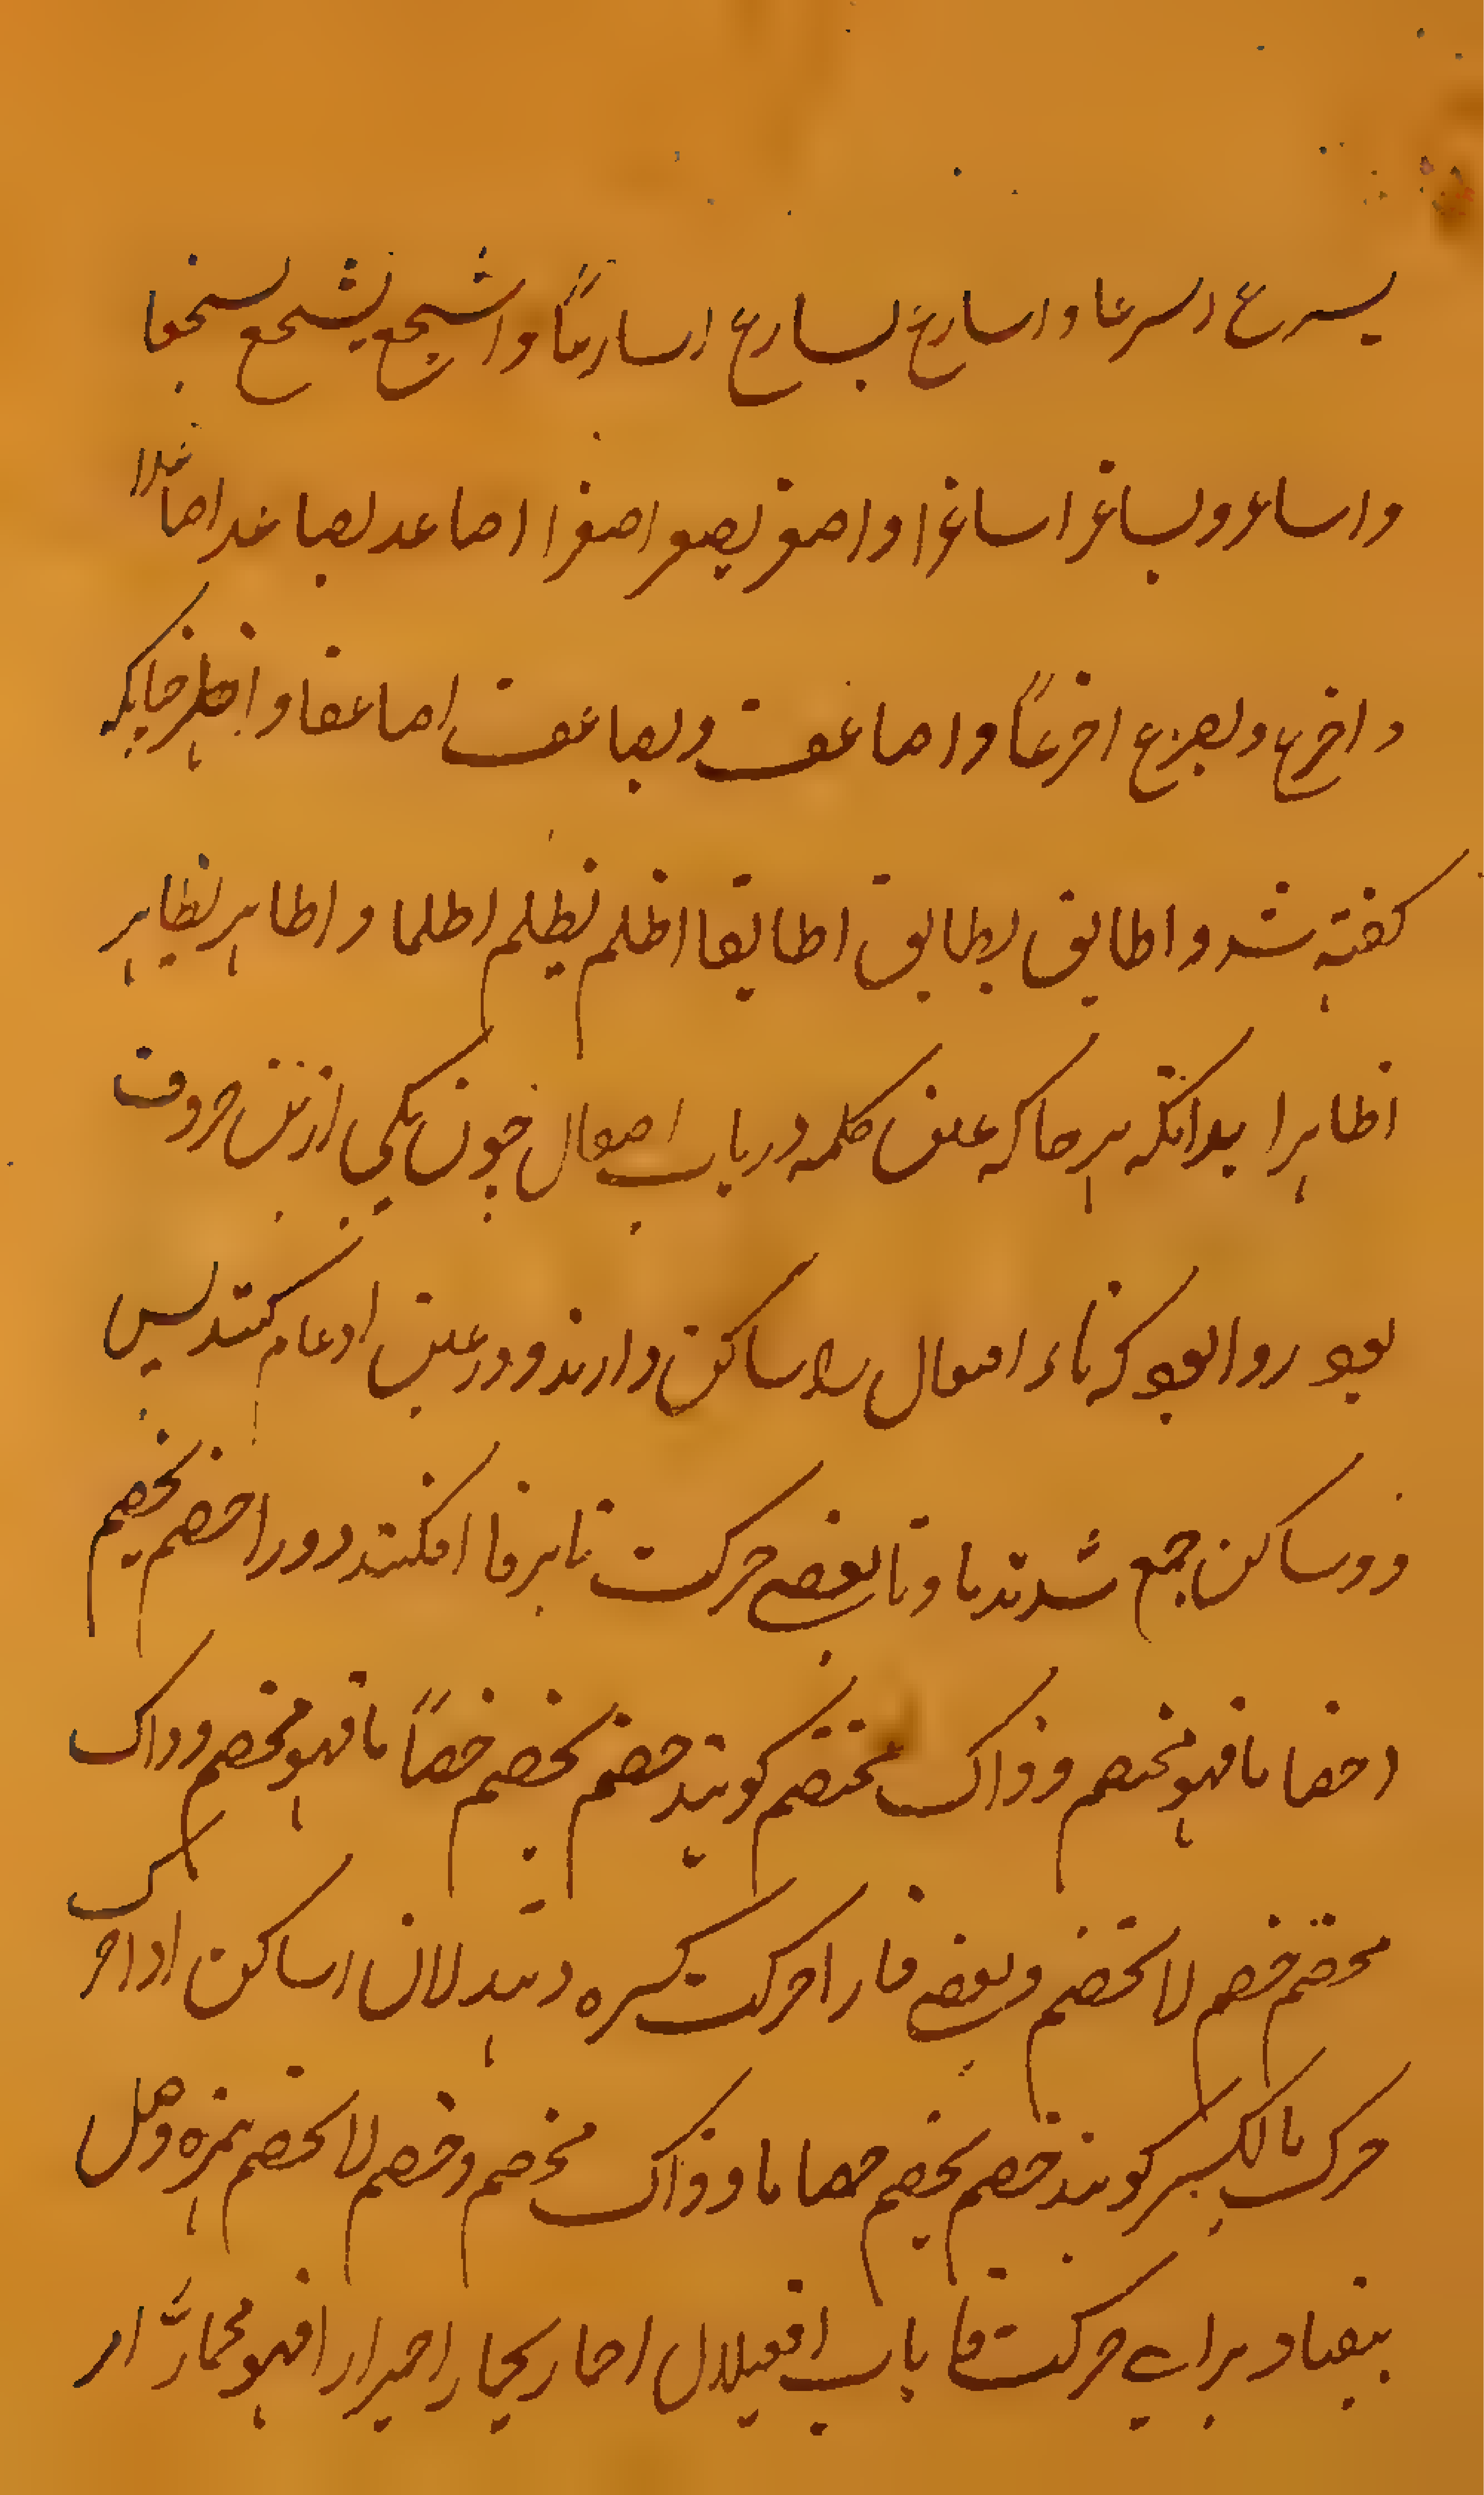 یسرع اسرعا و اسارع یسارع اسارعًا و اشجع یشجع یشجعا
و اساعر و یساغر اساغرا و اصغر یصغر اصغرا اصاعد یصاعد اصاعدا
و اضرع و یضرع اضرعًا و اضاعف و یضاعف اضاعفا و اظهر چنانکه
کفته شد و اطابق یطابق اطابقا اظلم یظلم اظلما و اظاهر یظاهر
اظاهرا بدانکه هر جا که عین کلمه در باب افتعال چون یکی ازین حروف
بود روا بود که تاء افتعال را ساکن دارند و در عین ادغام کنند پس
دو ساکن جمع شدند فا و تا بعضی حرکت تا بر فا افکنند و در اختصم یختصم
اختصاما فهو مختصم و ذاک مختصم کویند خصم یخصم خصّامًا فهو مخصم و ذاک
مخصم خصم لا تخصم و بعضی فا را حرکت کسره دهند لان الساکن اذا حرک
حرک بالکسر کویند خصم یخصم خصاما و ذاک مخصم و خصم لا تخصم همزه وصل
بیفتاد برای حرکت فا باب افعیلال احمار یحمار احمیرارا فهو محمارّ ار